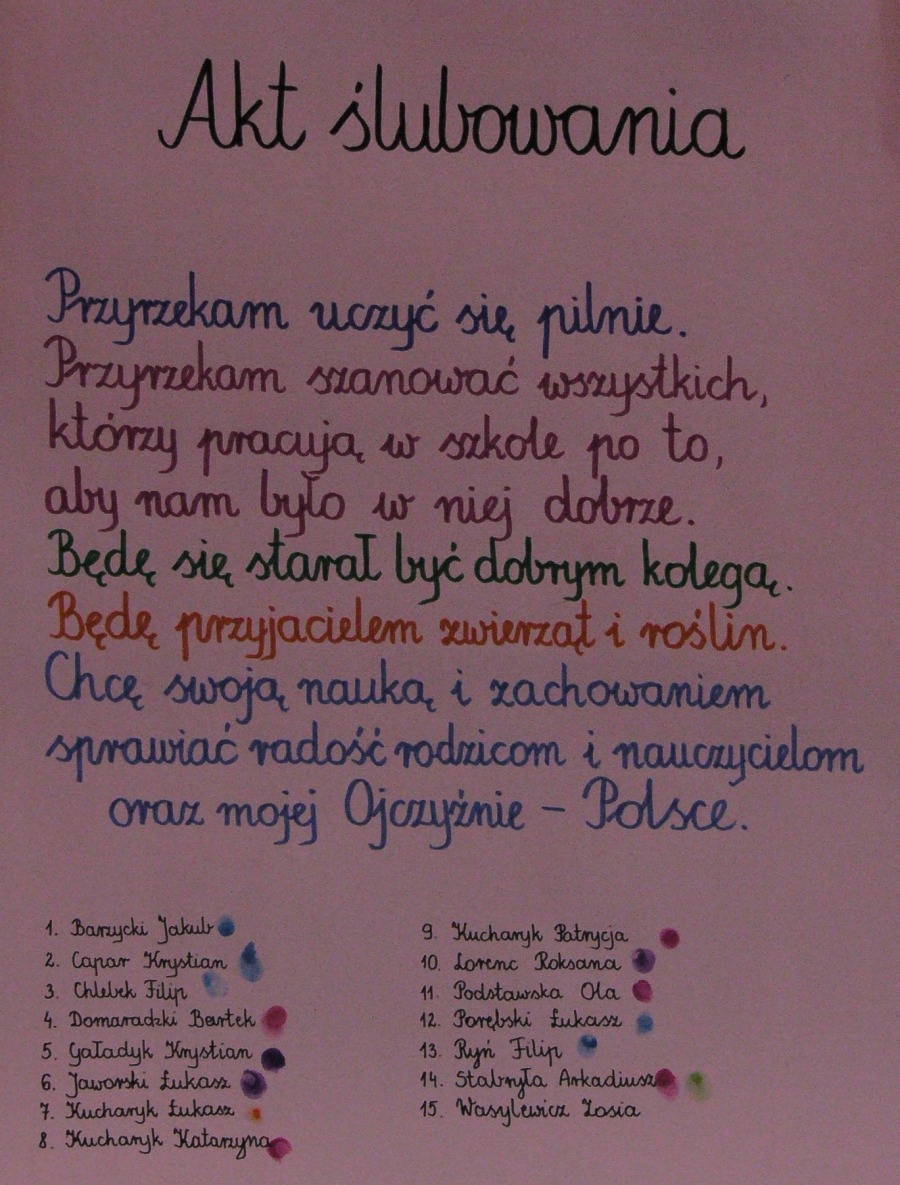 Akt ślubowania
Przyrzekam uczyć się pilnie.
Przyrzekam szanować wszystkich,
którzy pracują w szkole po to,
aby nam było w niej dobrze.
Będę się starał być dobrym kolegą.
Będę przyjacielem zwierząt i roślin.
Chcę swoją nauką i zachowaniem
sprawiać radość rodzicom i nauczycielom
oraz mojej Ojczyźnie – Polsce.
1. Barzycki Jakub
2. Capar Krystian
3. Chlebek Filip
4. Domaradzki Bartek
5. Gaładyk Krystian
6. Jaworski Łukasz
7. Kucharyk Łukasz
8. Kucharyk Katarzyna
9. Kucharyk Patrycja
10. Lorenc Roksana
11. Podstawska Ola
12. Porębski Łukasz
13. Ryń Filip
14. Stabryła Arkadiusz
15. Wasylewicz Zosia